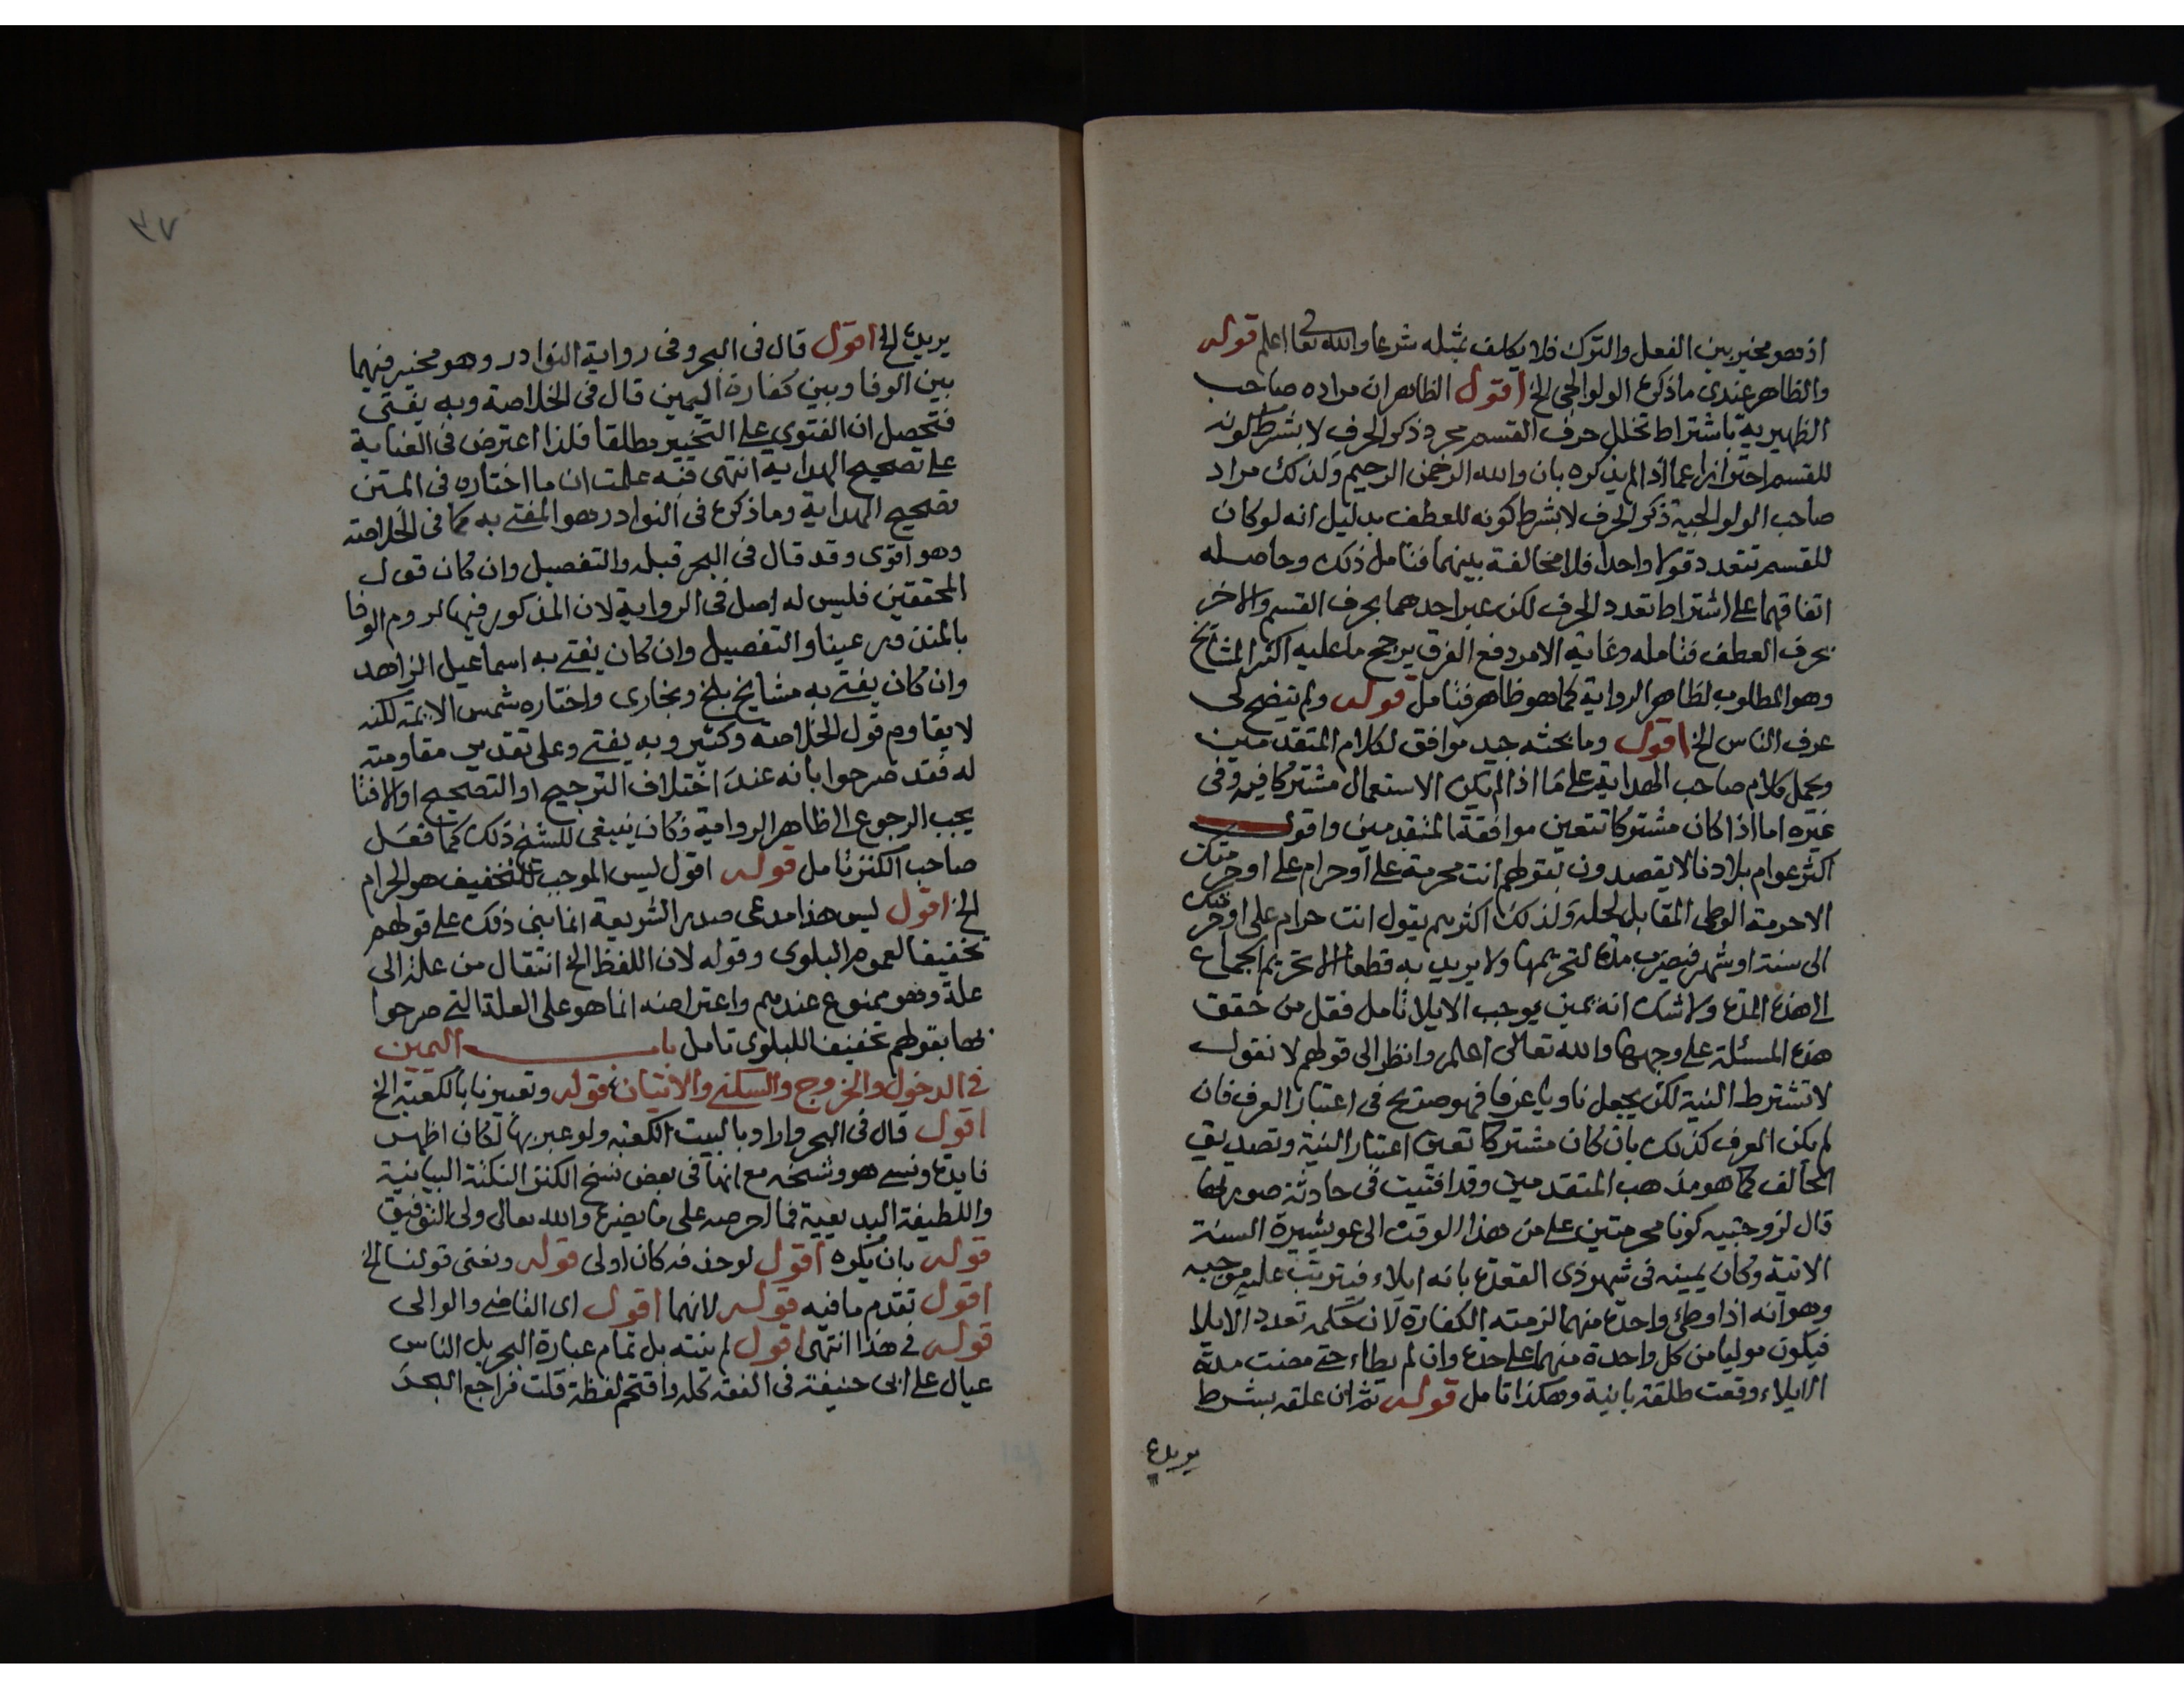 اذ هو مخير بين الفعل والترك فلا يكلف بمثله شرعا والله تعالى اعلم قوله
والظاهر عندى ماذكره الولوالجى الخ اقول الظاهر ان مراده صاحب
الظهيرية باشتراط تخلل حرف القسم مجرد ذكر الحرف لا بشرط كونه
للقسم احترازا عما اذا لم يذكره بان والله الرحمن الرحيم ولذلك مراد
صاحب الولوالجية ذكر الحرف لا بشرط كونه للعطف بدليل انه لو كان
للقسم تتعدد قولا واحدا فلا مخالفة بينهما فتامل ذلك وحاصله
اتفاقهما على اشتراط تعدد الحرف لكن عبر احدهما بحرف القسم والاخر
بحرف العطف فتامله وغاية الامر دفع الفرق يرجح ما عليه اكثر المشايخ
وهو المطلوب لظاهر الرواية كما هو ظاهر فتامل قوله ولم يتضح لى
عرف الناس الخ اقول وما بحثه جيد موافق لكلام المتقدمين
ويحمل كلام صاحب الهداية على ما اذا لم يكن الاستعمال مشتركا فيه وفى
غيره اما اذا كان مشتركا تتعين موافقة المتقدمين واقول
اكثر عوام بلادنا لا يقصدون بقولهم انت محرمة على او حرام على او حرمتك
الا حرمة الوطى المقابل لحله ولذلك اكثرهم يقول انت حرام على او حرمتك
الى سنة او شهر فيضرب مدة لتحريمها ولا يريد به قطعا الا تحريم الجماع
الى هذه المدة ولا شك انه يمين يوجب الايلا تامل فقل من حقق
هذه المسئلة على وجهها والله تعالى اعلم وانظر الى قولهم لا نقول
لا تشترط النية لكن يجعل ناويا عرفا فهو صريح فى اعتبار العرف فان
لم يكن العرف كذلك بان كان مشتركا تعين اعتبار النية وتصديق
الحالف كما هو مذهب المتقدمين وقد افتيت فى حادثة صورتها
قال لزوجتيه كونا محرمتين على من هذا الوقت الى عو يشيرة السنة
الاتية وكان يمينه فى شهر ذى القعدة بانه ايلاء فيترتب عليه موجبه
وهو انه اذا وطئ واحدة منهما لزمته الكفارة لان حكمه تعدد الايلا
فيكون موليا من كل واحدة منهما على حدة وان لم يطاء حتى مضت مدة
الايلاء وقعت طلقة باينة وهكذا تامل قوله ثم ان علقه بشرط
يريده
٣٧
يريده الخ اقول قال فى البحر وفى رواية النوادر وهو مخير فيهما
بين الوفا وبين كفارة اليمين قال فى الخلاصة وبه يفتى
فتحصل ان الفتوى على التخيير مطلقا فلذا اعترض فى العناية
على تصحيح الهداية انتهى فنه علمت ان ما اختاره فى المتن
تصحيح الهداية وما ذكره فى النوادر هو المفتى به كما فى الخلاصة
وهو اقوى وقد قال فى البحر قبله والتفصيل وان كان قول
المحققين فليس له اصل فى الرواية لان المذكور فيها لزوم الوفا
بالمنذور عينا والتفصيل وان كان يفتى به اسماعيل الزاهد
وان كان يفتى به مشايخ بلخ وبخارى واختاره شمس الايمة لكنه
لا يقاوم قول الخلاصة وكثير وبه يفتى وعلى تقدير مقاومته
له فقد صرحوا بانه عند اختلاف الترجيح او التصحيح او الافتا
يجب الرجوع الى ظاهر الرواية فكان ينبغى للشيخ ذلك كما فعل
صاحب الكنز تامل قوله اقول ليس الموجب للتخفيف هو الحرام
الخ اقول ليس هذا مدعى صدر الشريعة انما بنى ذلك على قولهم
تخفيفا لعموم البلوى وقوله لان اللفظ الخ انتقال من علة الى
علة وهو ممنوع عندهم واعتراضه انما هو على العلة التى صرحوا
بها بقولهم تخفيفا للبلوى تامل باب اليمين
فى الدخول والخروج والسكنى والاتيان قوله وتعبيرنا بالكعبة الخ
اقول قال فى البحر واراد بالبيت الكعبة ولو عبر بها لكان اظهر
فايدة ونسى هو وشخه مع انها فى بعض نسخ الكنز النكتة البيانية
واللطيفة البديعية فما احرصه على ما يضره والله تعالى ولى التوفيق
قوله بان يكره اقول لو حذفه كان اولى قوله ونعنى قولنا الخ
اقول تقدم ما فيه قوله لانهما اقول اى القاضى والوالى
قوله فى هذا انتهى اقول لم ينته بل تمام عبارة البحر بل الناس
عيال على ابى حنيفة فى الفقه كله واقتحم لفظة قلت فراجع البحر